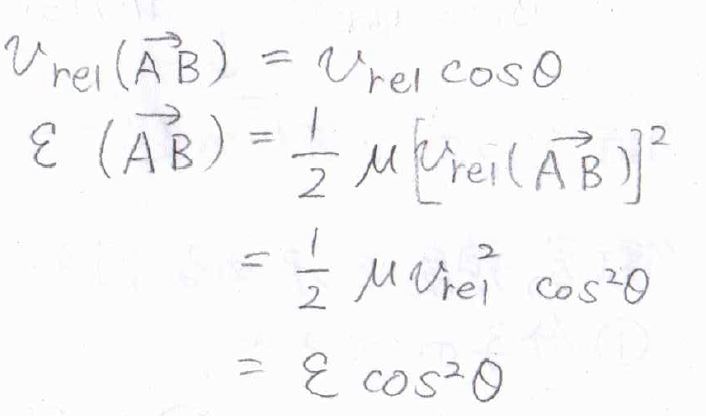 v_rel(\vec{AB}) = v_rel cosθ
ε (\vec{AB}) = 1/2 μ[v_rel(\vec{AB})]²
= 1/2 μ v_rel² cos²θ
= ε cos²θ